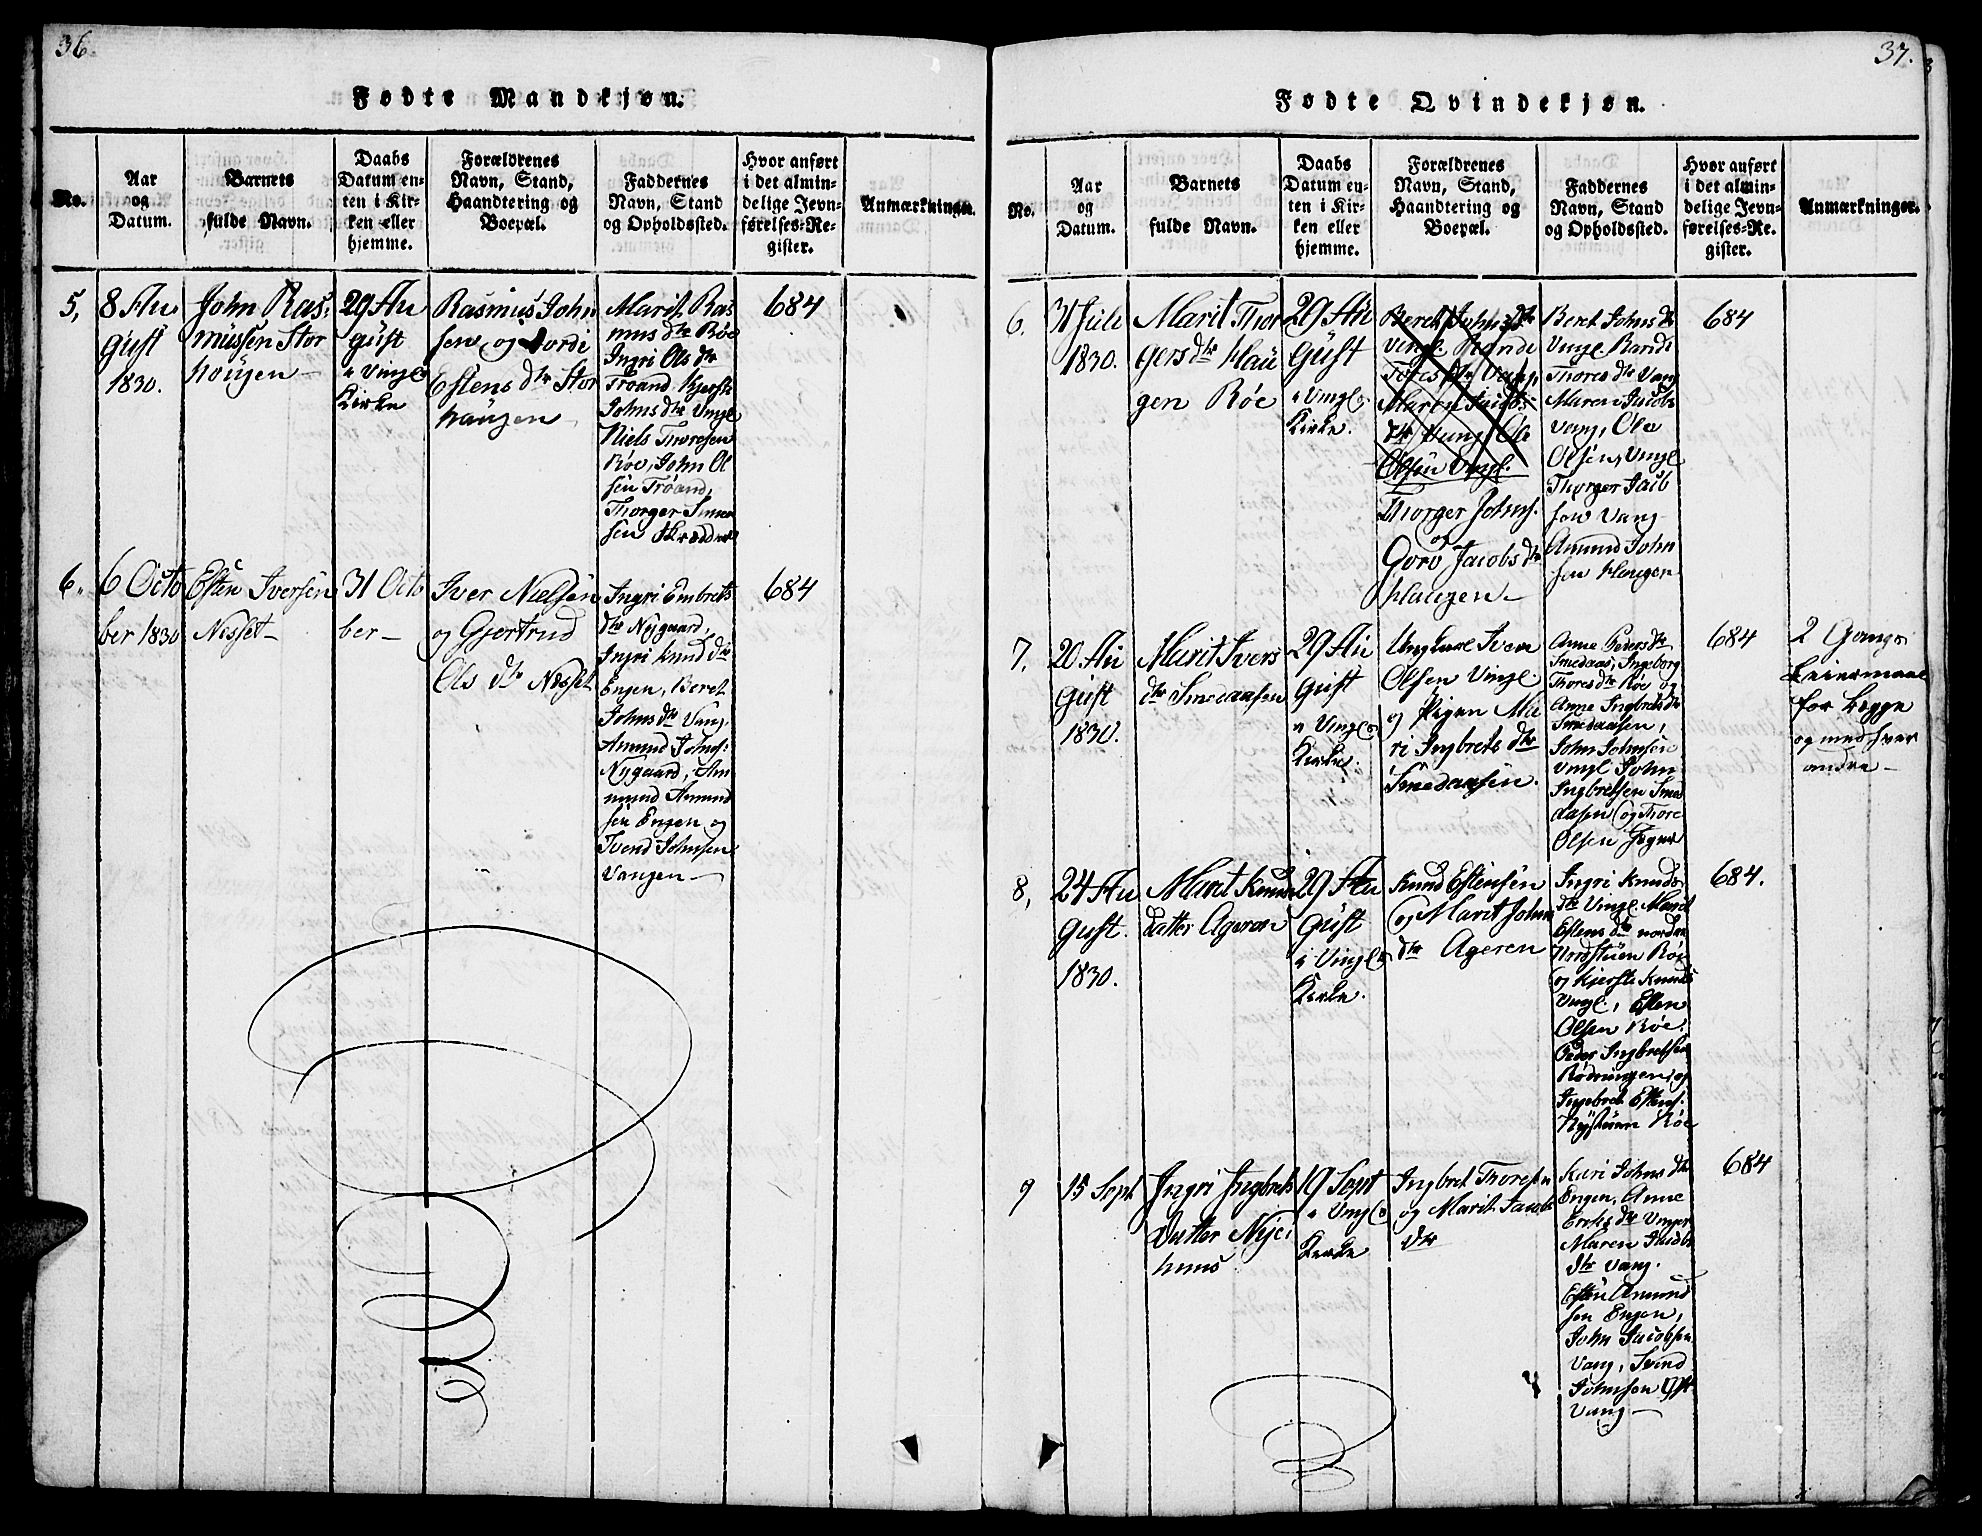 36.
Fødte Mandkjøn.
No.
Aar
og
Datum.
Barnets
fulde Navn.
Daabs
Datum en-
ten i Kir-
ken eller
hjemme.
Forældrenes
Navn, Stand,
Haandtering og
Boepæl.
Faddernes
Navn, Stand
og Opholdssted.
Hvor anført
i det almin-
delige Jevn-
førelses-Re-
gister.
Anmærkninger.
5,
8 Au
gust
1830.
John Ras-
mussen Stor
hougen
29 Au
gust
i Vingl.
Kirke
Rasmus John
sen og Jordi
Estens dtr Stor
haugen
Marit Ras
mus dtr Røe
Ingri Ols dtr
Trøand Kjersti
Johns dtr Vingl
Niels Thoresen
Røe, John Ol
sen Trøand,
Thorger
sen Skrædder
684
6.
6 Octo
ber 1830
Esten Iversen
Nesset
31 Octo
ber
Iver Nielsen
og Gjertrud
Ols dtr Nesset
Ingri Embrets
dtr Nygaard,
Ingri Knud dtr
Engen, Beret
Johns dtr Vang,
Amund Johns:
Nygaard, Am
mund Amund
sen Engen og
Svend Johnsen
Vangen
684
37.
Fødte Qvindekjøn.
No.
Aar
og
Datum.
Barnets
fulde Navn.
Daabs
Datum en-
ten i Kir-
ken eller
hjemme.
Forældrenes
Navn, Stand,
Haandtering og
Boepæl.
Faddernes
Navn, Stand
og Opholdssted.
Hvor anført
i det almin-
delige Jevn-
førelses-Re-
gister.
Anmærkninger.
6.
31 Juli
1830.
Marit Thor
gers dtr Hau
gen Røe
29 Au
gust
i Vingl.
Kirke.
Beret Johns dtr
Vingl. Randi
Tores dtr Vang,
Maren Jacobs
dtr Vang Ole
Olsen Vingl.
Thorger Johns.
og
Goro Jacobs dtr
Haugen
Beret Johns dtr
Vingl Randi
Thores dtr Vang
Maren Jacobs
Vang, Ole
Olsen, Vingl
Thorger Jacob
sen Vang
Amund John
sen Haugen
684
7.
20 Au
gust
1830.
Marit Ivers
dtr Smedaasen
29 Au
gust
i Vingl.
Kirke.
Ungkarl Iver
Olsen Vingl.
og Pigen Ma
ri Ingbrets dtr
Smedaasen.
Anne Peders dtr
Smedaas, Ingeborg
Thores dtr Røe og
Anne Ingbrets dtr
Smedaasen,
John Johnsen
Vingl John
Ingbretsen Smed
aasen og Thore
Olsen
684
2 Gangs
Leiermaal
for begge
og med hver
andre
8,
24 Au
gust.
1830.
Marit Knuds
datter Ageren
29 Au
gust
i Vingl.
Kirke.
Knud Estensen
og Marit Johns
dtr Ageren
Ingri Knuds
dtr Vingl. Marit
Estens dtr nordre
Nordstuen Røe
og Kjersti Knuds
Vingl., Esten
Olsen Røe.
Peder Ingbretsen
Rødningen, og
Ingebret Estens.
Nystuen Røe
684.
9
15 Sept
Ingri Ingbrets
Datter Nye
huus
19 Sept
i Vingl.
Kirke
Ingbret Thoresen
og Marit Jacobs
dtr
Kari Johns dtr
Engen, Anne
Eriks dtr
Maren Jacobs
dtr Vang.
Esten Amund
sen Engen,
John Jacobsen
Vang, Svend
Johnsen
Vang
684